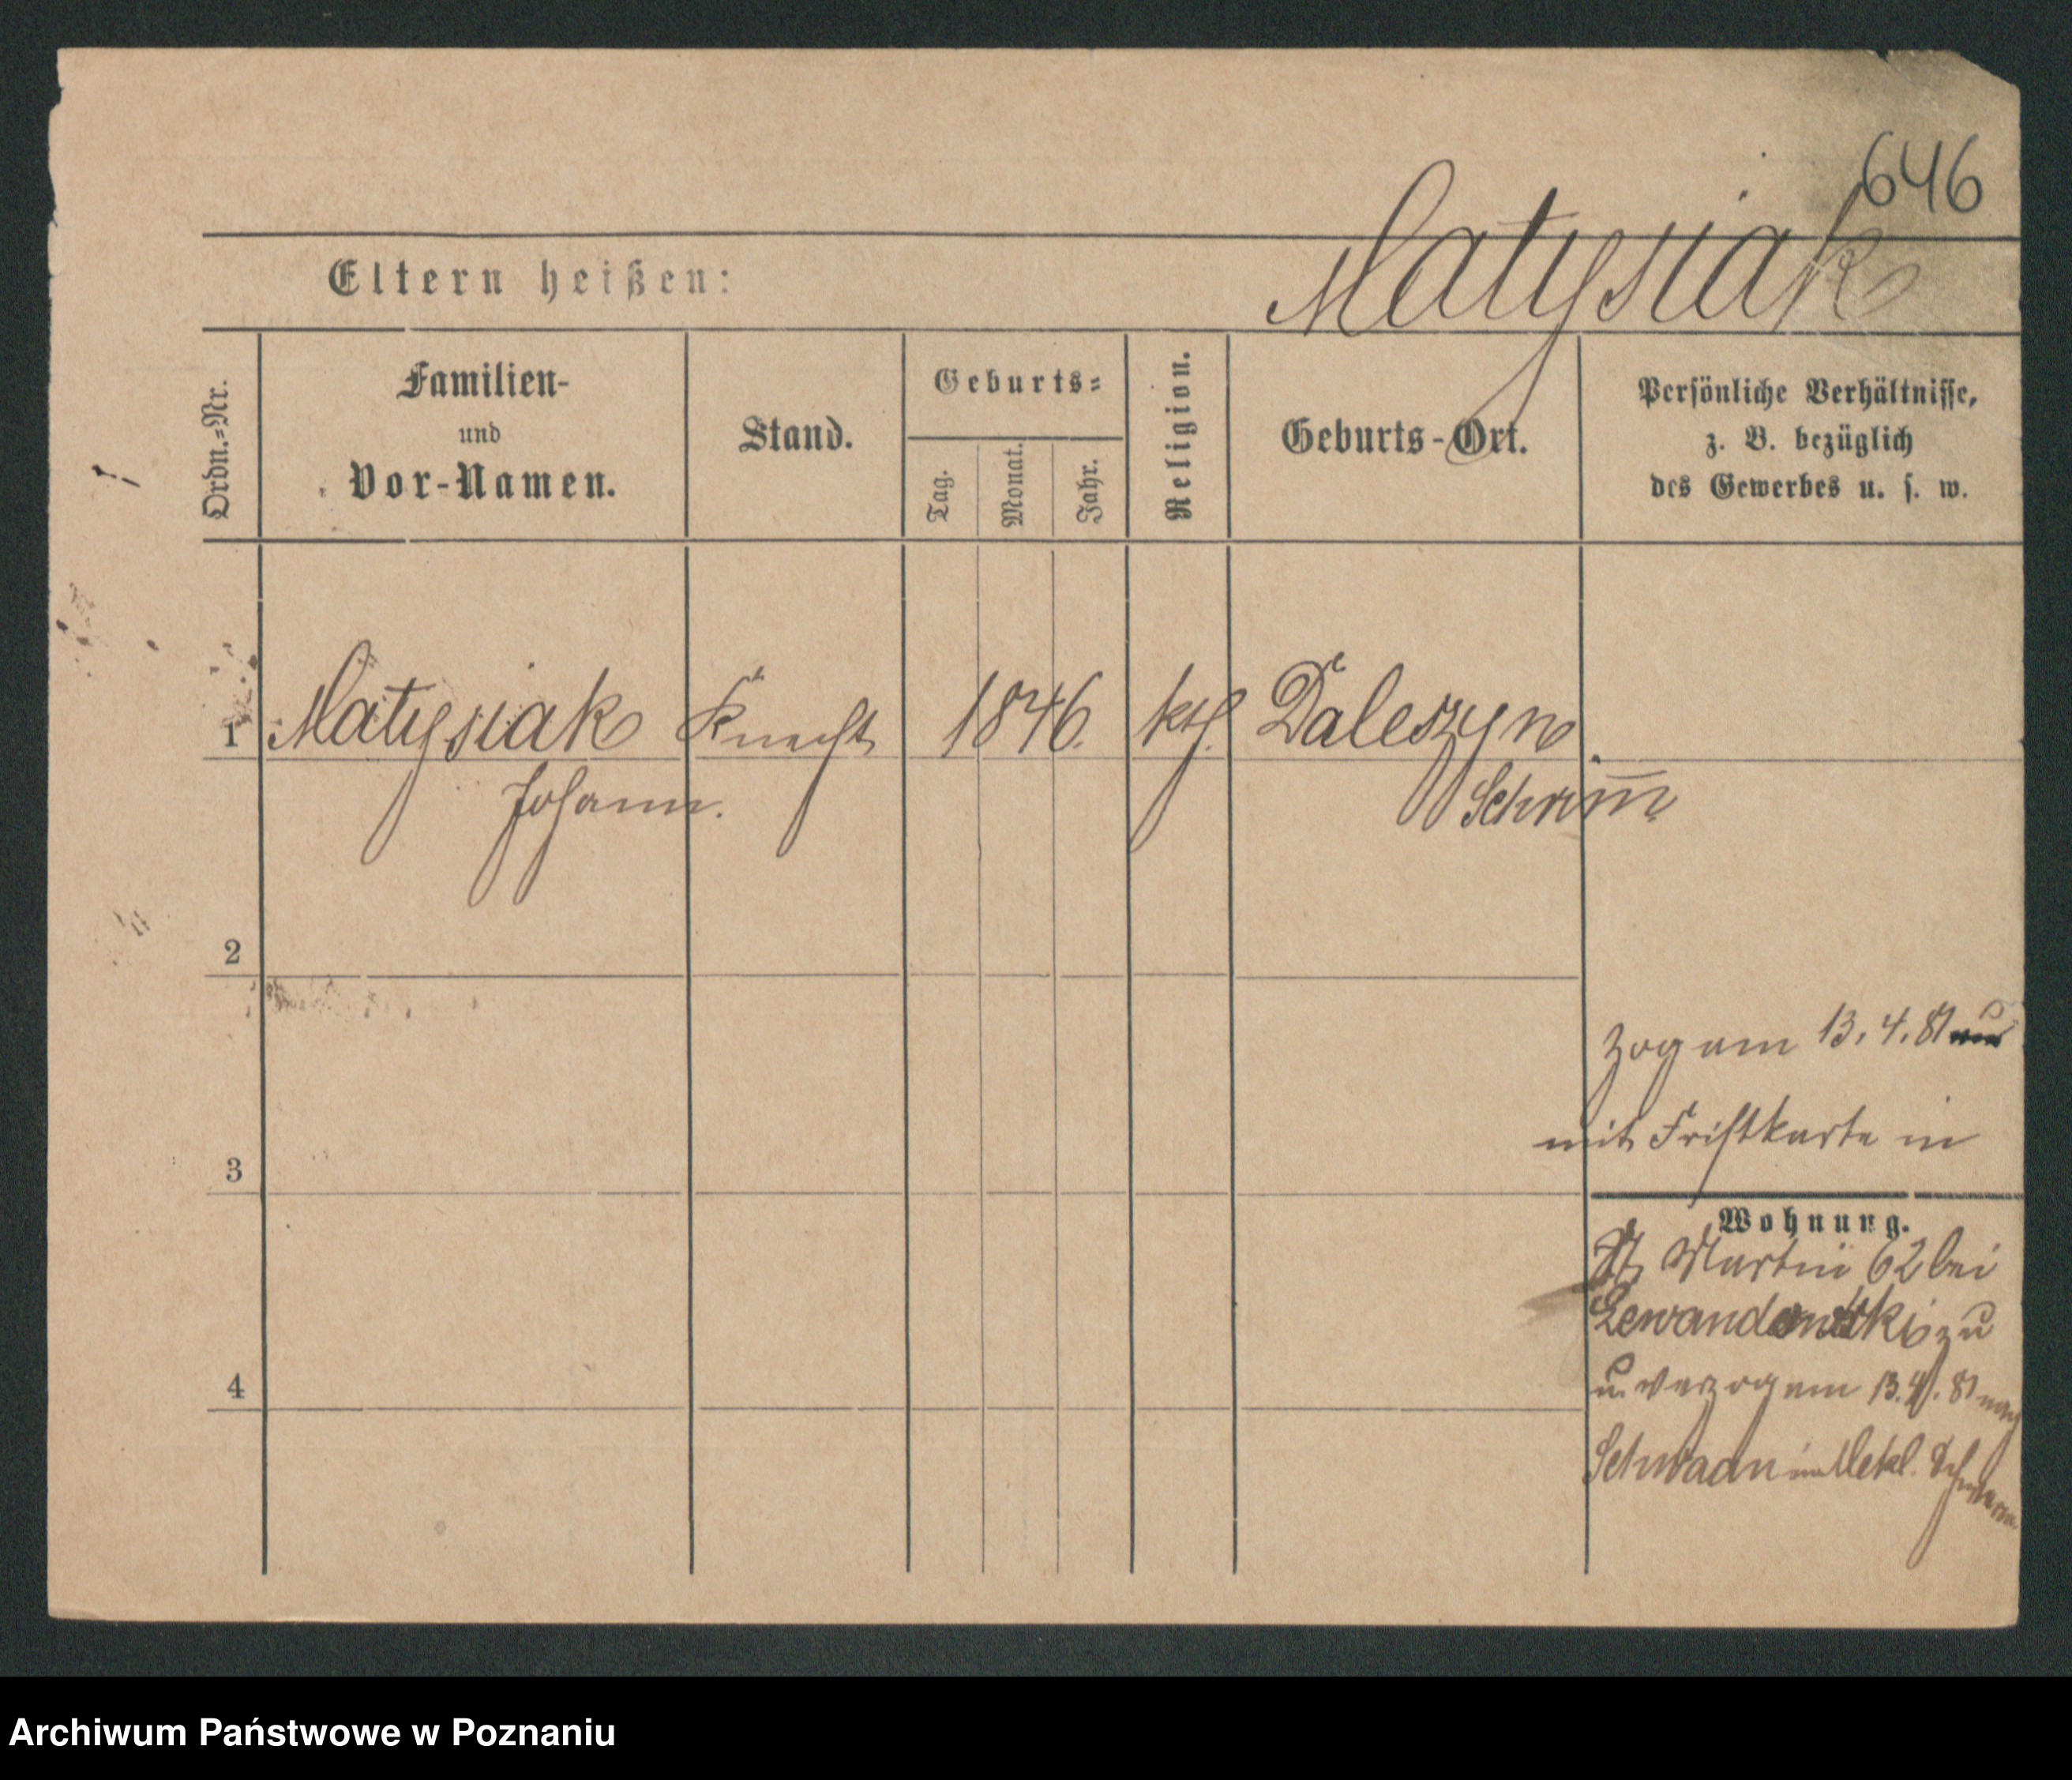 646
Matysiak
Eltern heißen:
Ordn.=Nr.
Familien-
und
Vor-Namen.
Stand.
Geburts=
Tag.
Monat.
Jahr.
Religion.
Geburts-Ort.
Persönliche Verhältnisse,
z. B. bezüglich
des Gewerbes u. s. w.
1 Matysiak Knecht 1846. kth. Daleszyn
Johann. Schrim̅
2
zog am 13. 4. 81
mit Fristkarte in
3
Wohnung.
St. Martin 62 bei
Lewandowski zu
4
u. verzog am 13. 4. 81 nach
Schwaan in Mekl. Schwerin
Archiwum Państwowe w Poznaniu